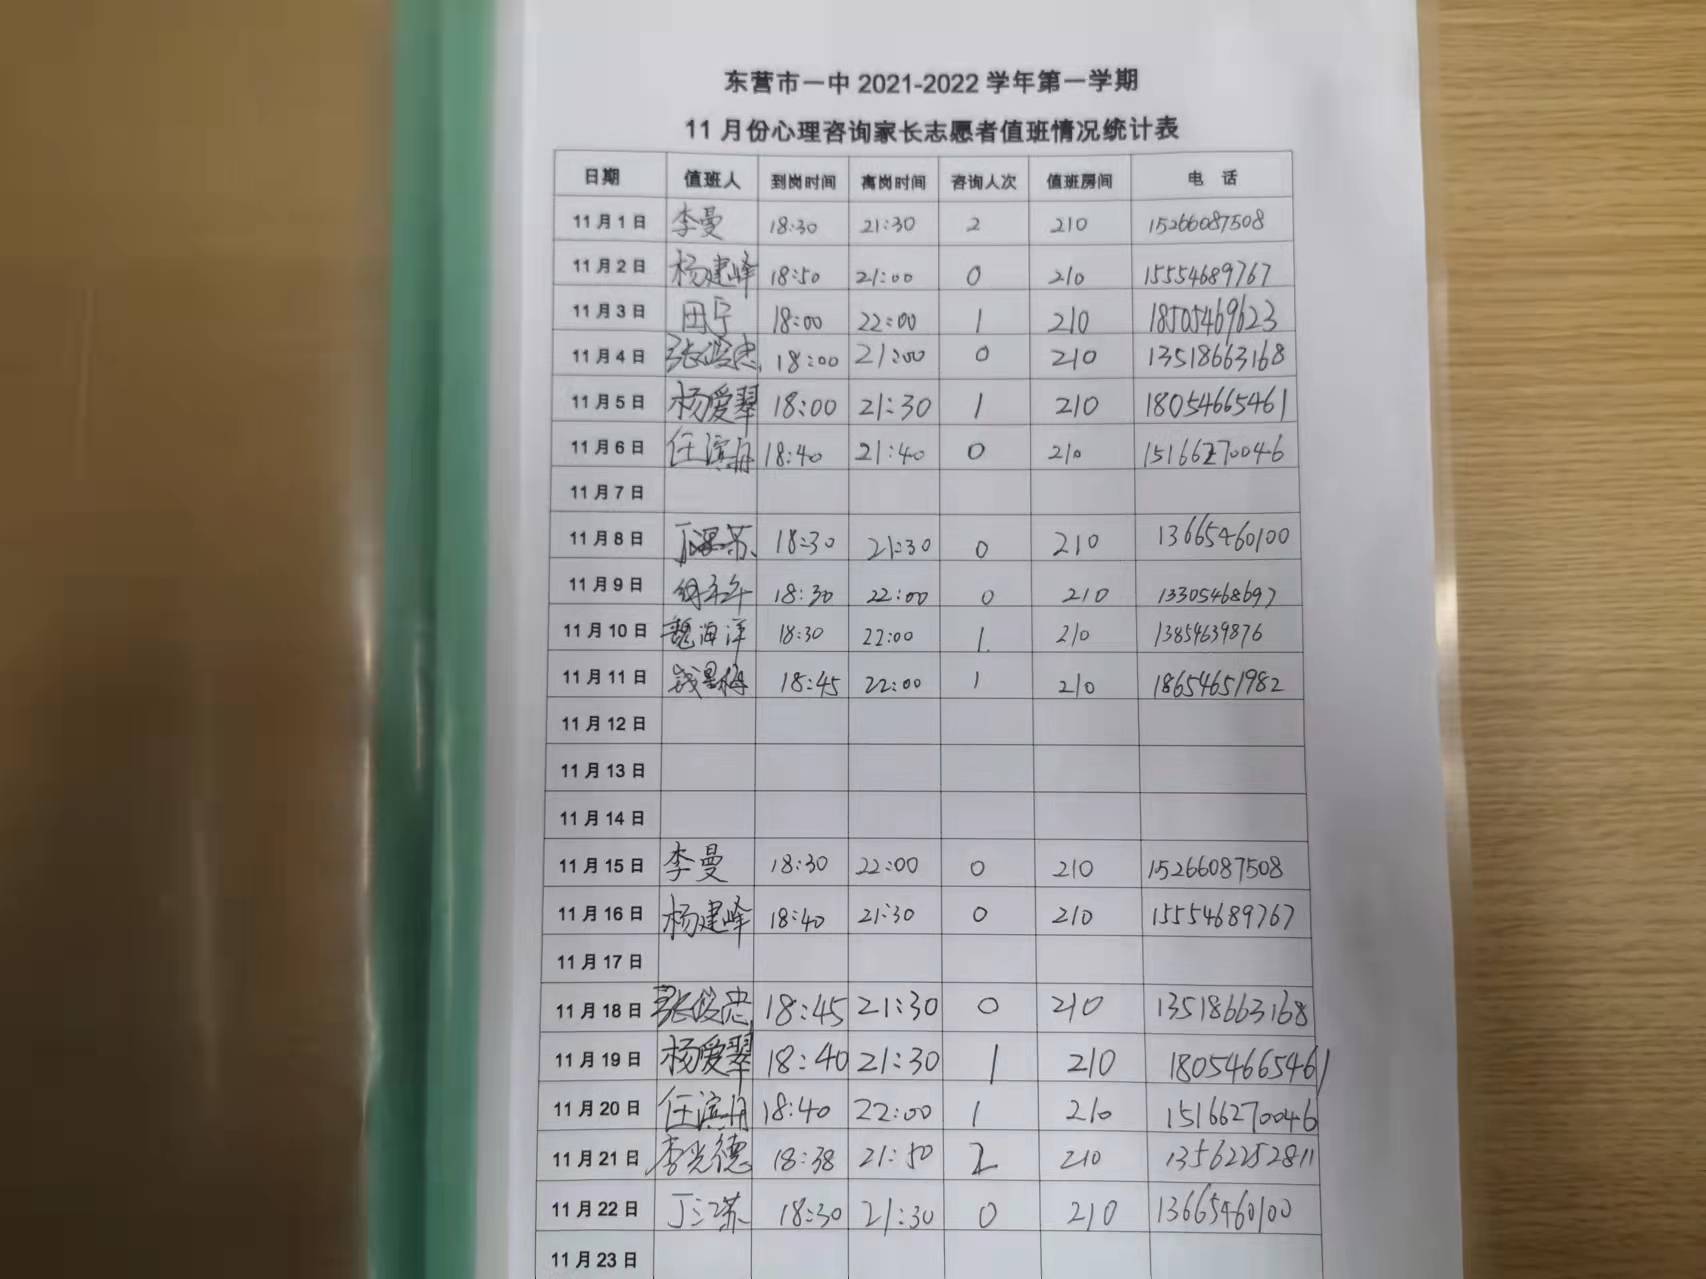 东营市一中 2021-2022 学年第一学期
11 月份心理咨询家长志愿者值班情况统计表
日期 值班人 到岗时间 离岗时间 咨询人次 值班房间 电 话
11 月 1 日 李曼 18:30 21:30 2 210 15266087508
11 月 2 日 杨建峰 18:50 21:00 0 210 15554689767
11 月 3 日 田宁 18:00 22:00 1 210 18505469623
11 月 4 日 张俊忠 18:00 21:00 0 210 13518663168
11 月 5 日 杨爱翠 18:00 21:30 1 210 18054665461
11 月 6 日 任滨丹 18:40 21:40 0 210 15166270046
11 月 7 日
11 月 8 日 丁江苏 18:30 21:30 0 210 13665460100
11 月 9 日 18:30 22:00 0 210 13305468697
11 月 10 日 魏海洋 18:30 22:00 1 210 13854639876
11 月 11 日 18:45 22:00 1 210 18654651982
11 月 12 日
11 月 13 日
11 月 14 日
11 月 15 日 李曼 18:30 22:00 0 210 15266087508
11 月 16 日 杨建峰 18:40 21:30 0 210 15554689767
11 月 17 日
11 月 18 日 张俊忠 18:45 21:30 0 210 13518663168
11 月 19 日 杨爱翠 18:40 21:30 1 210 18054665461
11 月 20 日 任滨丹 18:40 22:00 1 210 15166270046
11 月 21 日 李光德 18:38 21:50 2 210 13562252811
11 月 22 日 丁江苏 18:30 21:30 0 210 13665460100
11 月 23 日